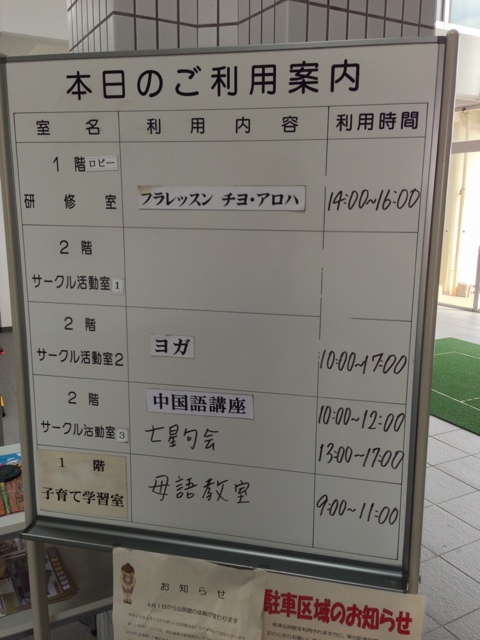 本日のご利用案内
室名 利用内容 利用時間
1階ロビー
研修室 フラレッスン チヨ・アロハ 14:00~16:00
2階
サークル活動室1
2階
サークル活動室2 ヨガ 10:00~17:00
2階 中国語講座 10:00~12:00
サークル活動室3 七星句会 13:00~17:00
1階
子育て学習室 母語教室 9:00~11:00
お知らせ
駐車区域のお知らせ